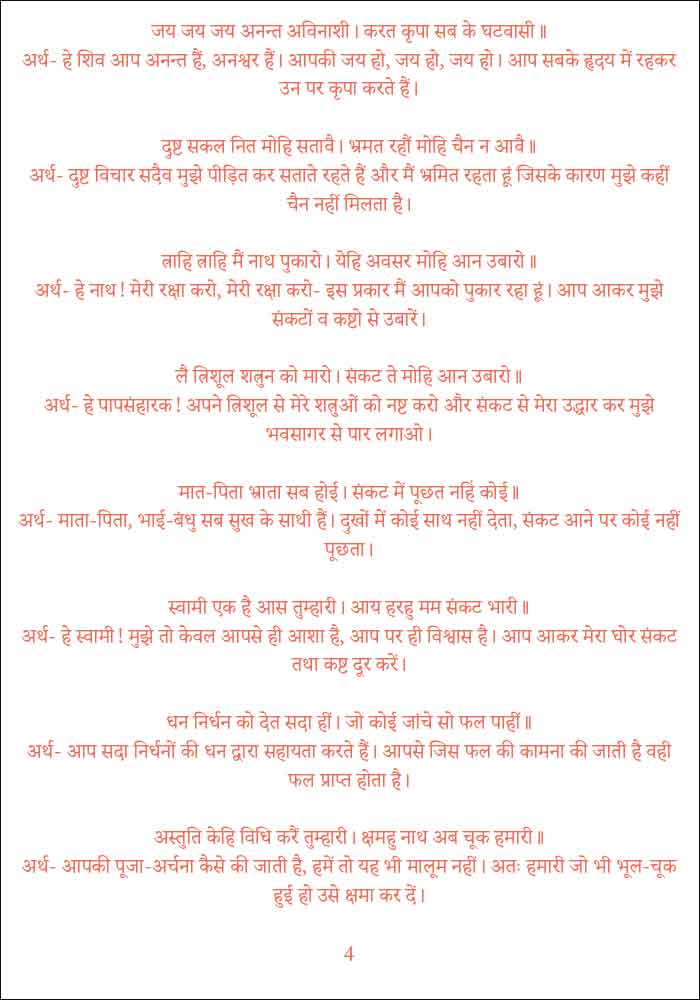 जय जय जय अनन्त अविनाशी। करत कृपा सब के घटवासी॥
अर्थ- हे शिव आप अनन्त हैं, अनश्वर हैं। आपकी जय हो, जय हो, जय हो। आप सबके हृदय में रहकर
उन पर कृपा करते हैं।
दुष्ट सकल नित मोहि सतावै। भ्रमत रहौं मोहि चैन न आवै॥
अर्थ- दुष्ट विचार सदैव मुझे पीड़ित कर सताते रहते हैं और मैं भ्रमित रहता हूं जिसके कारण मुझे कहीं
चैन नहीं मिलता है।
त्राहि त्राहि मैं नाथ पुकारो। येहि अवसर मोहि आन उबारो॥
अर्थ- हे नाथ! मेरी रक्षा करो, मेरी रक्षा करो- इस प्रकार मैं आपको पुकार रहा हूं। आप आकर मुझे
संकटों व कष्टो से उबारें।
लै त्रिशूल शत्रुन को मारो। संकट ते मोहि आन उबारो॥
अर्थ- हे पापसंहारक! अपने त्रिशूल से मेरे शत्रुओं को नष्ट करो और संकट से मेरा उद्धार कर मुझे
भवसागर से पार लगाओ।
मात-पिता भ्राता सब होई। संकट में पूछत नहिं कोई॥
अर्थ- माता-पिता, भाई-बंधु सब सुख के साथी हैं। दुखों में कोई साथ नहीं देता, संकट आने पर कोई नहीं
पूछता।
स्वामी एक है आस तुम्हारी। आय हरहु मम संकट भारी॥
अर्थ- हे स्वामी! मुझे तो केवल आपसे ही आशा है, आप पर ही विश्वास है। आप आकर मेरा घोर संकट
तथा कष्ट दूर करें।
धन निर्धन को देत सदा हीं। जो कोई जांचे सो फल पाहीं॥
अर्थ- आप सदा निर्धनों की धन द्वारा सहायता करते हैं। आपसे जिस फल की कामना की जाती है वही
फल प्राप्त होता है।
अस्तुति केहि विधि करैं तुम्हारी। क्षमहु नाथ अब चूक हमारी॥
अर्थ- आपकी पूजा-अर्चना कैसे की जाती है, हमें तो यह भी मालूम नहीं। अतः हमारी जो भी भूल-चूक
हुई हो उसे क्षमा कर दें।
4